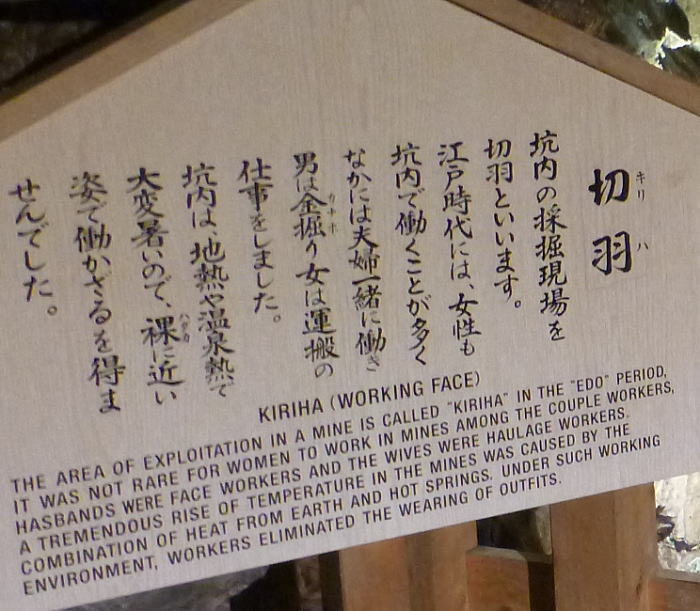 切羽
キリハ
坑内の採掘現場を
切羽といいます。
江戸時代には、女性も
坑内で働くことが多く
なかには夫婦一緒に働き
男は金掘り女は運搬の
カナホ
仕事をしました。
坑内は、地熱や温泉熱で
大変暑いので、裸に近い
ハダカ
姿で働かざるを得ま
せんでした。
KIRIHA (WORKING FACE)
THE AREA OF EXPLOITATION IN A MINE IS CALLED "KIRIHA" IN THE "EDO" PERIOD,
IT WAS NOT RARE FOR WOMEN TO WORK IN MINES AMONG THE COUPLE WORKERS,
HASBANDS WERE FACE WORKERS AND THE WIVES WERE HAULAGE WORKERS.
A TREMENDOUS RISE OF TEMPERATURE IN THE MINES WAS CAUSED BY THE
COMBINATION OF HEAT FROM EARTH AND HOT SPRINGS. UNDER SUCH WORKING
ENVIRONMENT, WORKERS ELIMINATED THE WEARING OF OUTFITS.